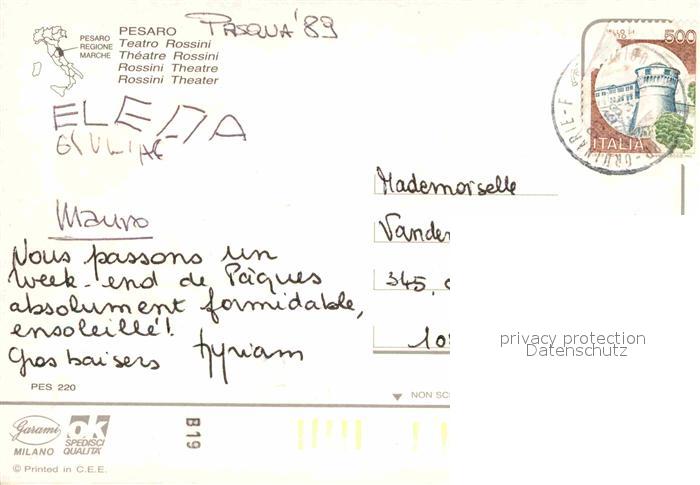 PESARO
Teatro Rossini
Théatre Rossini
Rossini Theatre
Rossini Theater
PESARO
REGIONE
MARCHE
PASQUA '89
500
ITALIA
ELEDA
Mauro
Nous passons un
week-end de Pâques
absolument formidable,
ensoleillé!
Gros baisers Myriam
Mademoiselle
Vander
345,
10
privacy protection
Datenschutz
PES 220
NON SC
Garami
MILANO
ok
SPEDISCI
QUALITÀ
B19
© Printed in C.E.E.